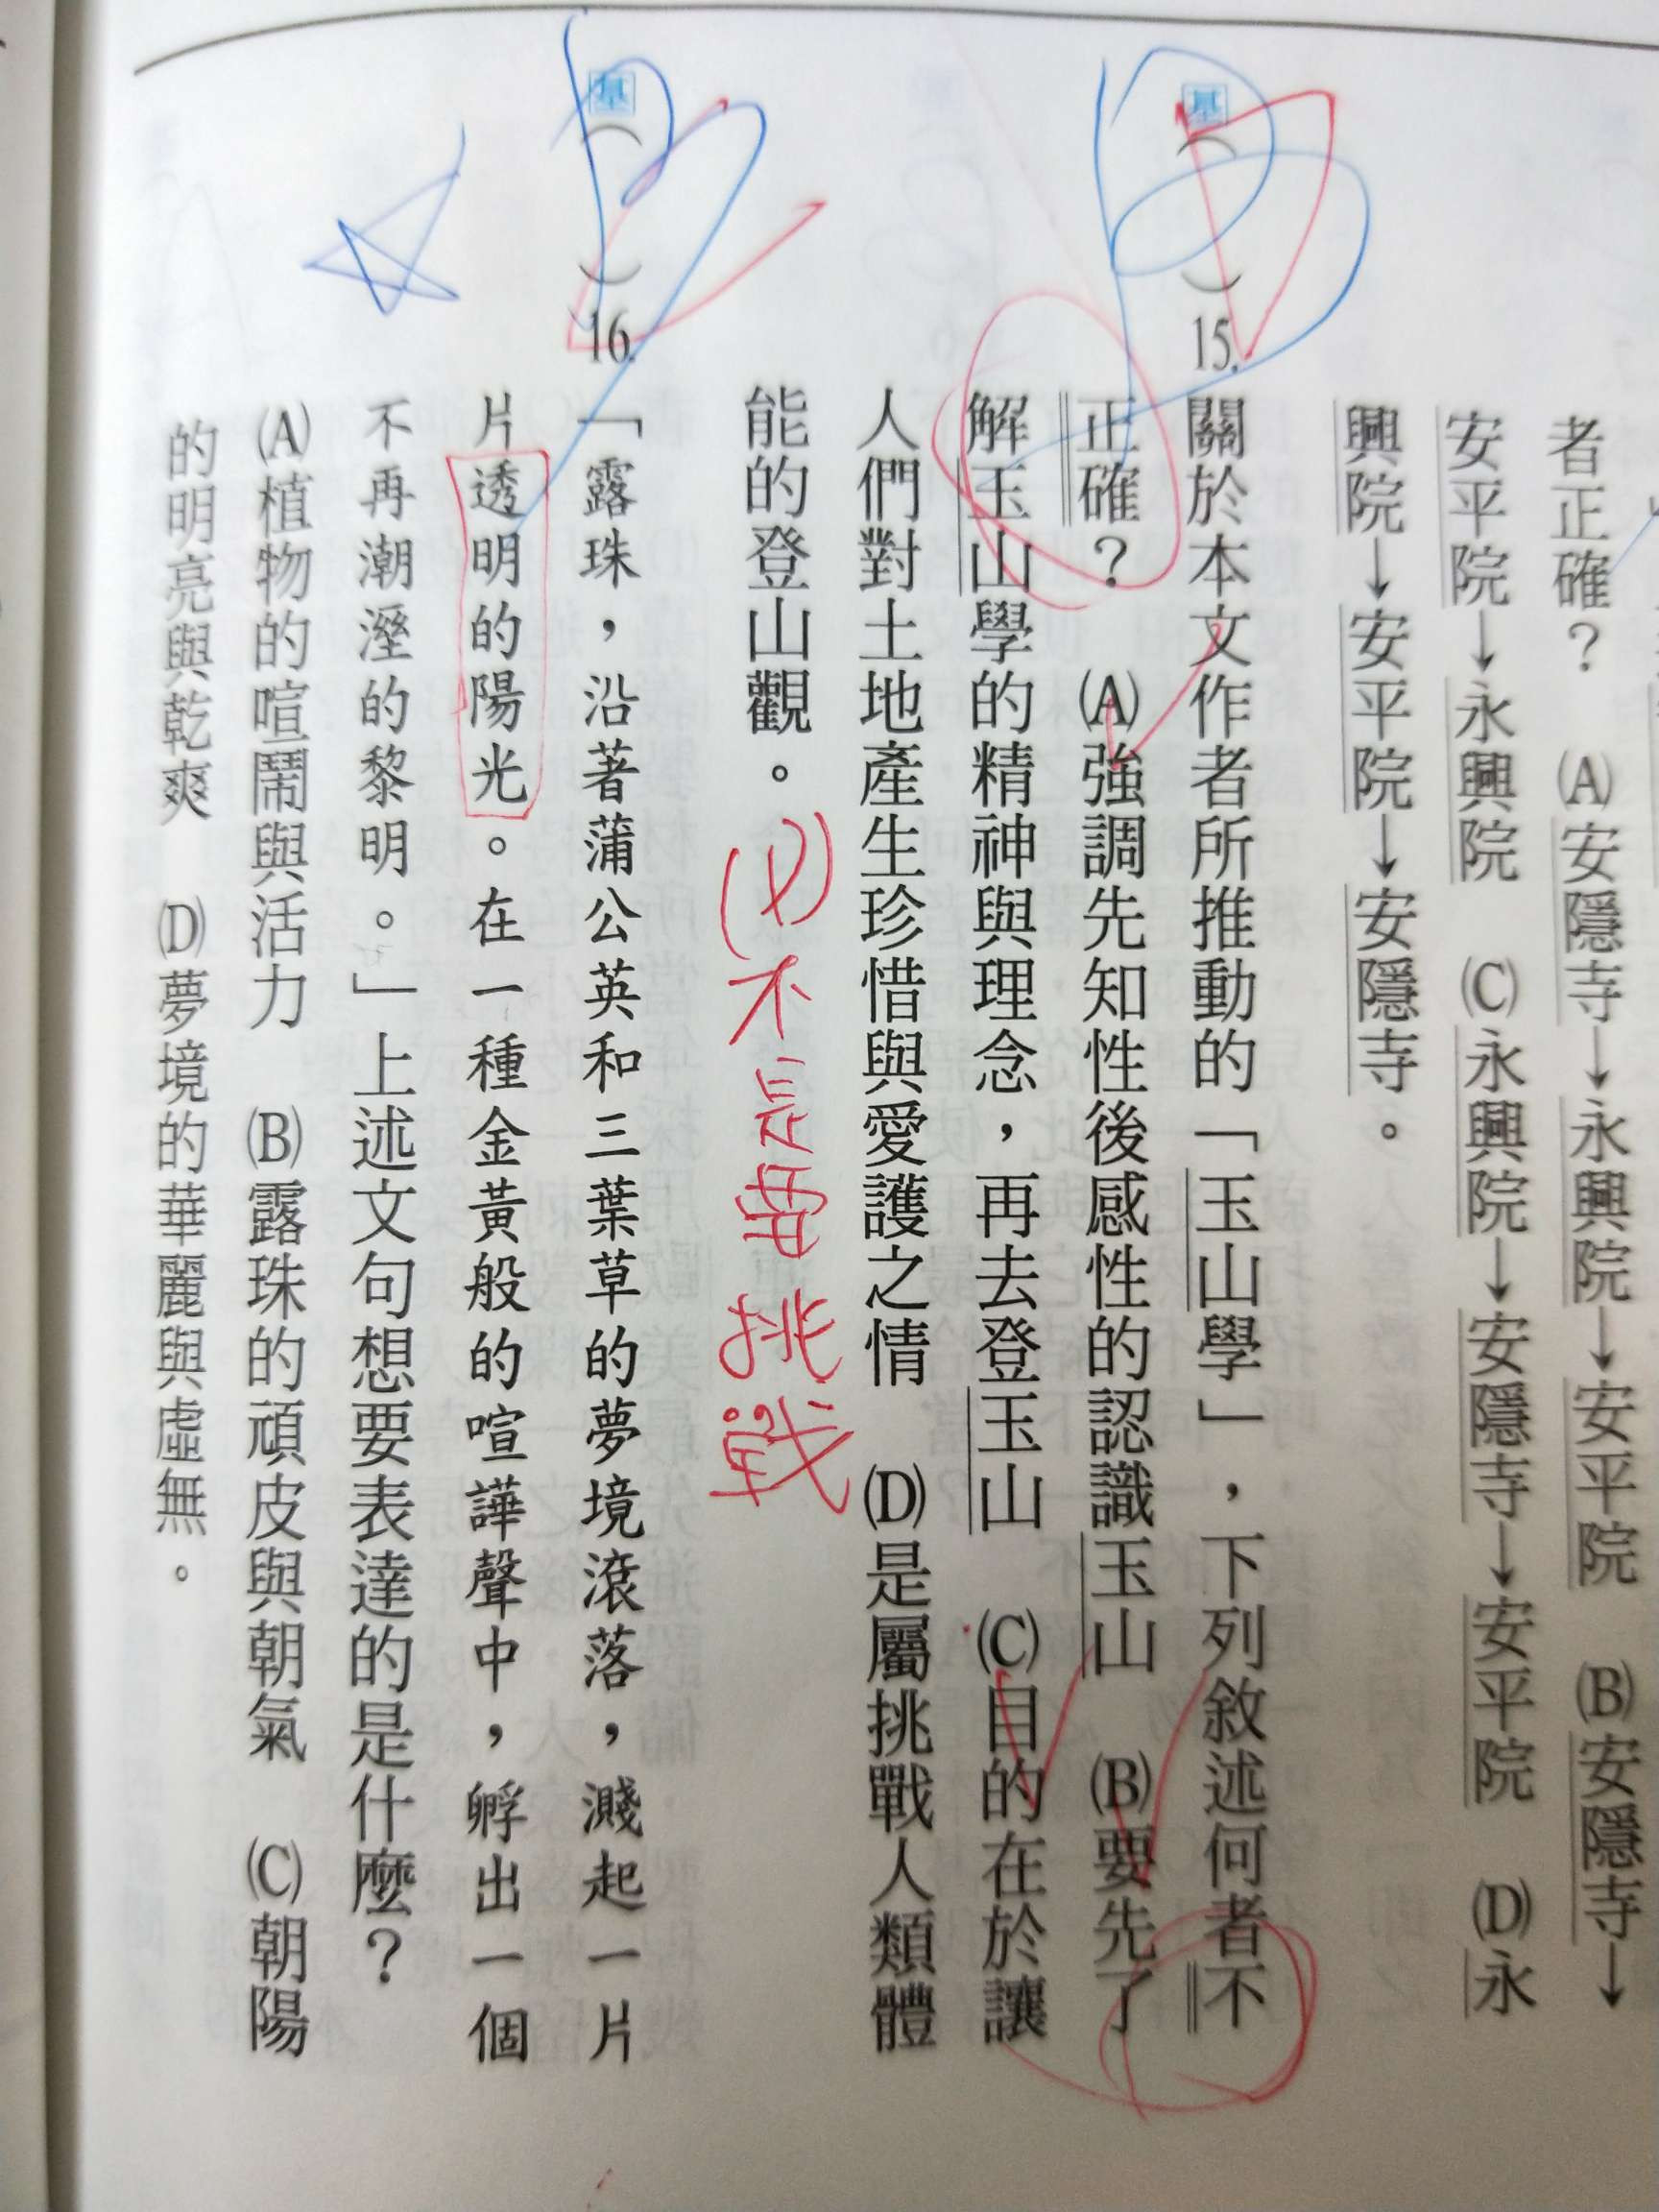 者正確？ (A)安隱寺→永興院→安平院 (B)安隱寺→
安平院→永興院 (C)永興院→安隱寺→安平院 (D)永
興院→安平院→安隱寺。
基( )15.關於本文作者所推動的「玉山學」，下列敘述何者不
正確？ (A)強調先知性後感性的認識玉山 (B)要先了
解玉山學的精神與理念，再去登玉山 (C)目的在於讓
人們對土地產生珍惜與愛護之情 (D)是屬挑戰人類體
能的登山觀。
不是要挑戰
基( )16.「露珠，沿著蒲公英和三葉草的夢境滾落，濺起一片
片透明的陽光。在一種金黃般的喧譁聲中，孵出一個
不再潮溼的黎明。」上述文句想要表達的是什麼？
(A)植物的喧鬧與活力 (B)露珠的頑皮與朝氣 (C)朝陽
的明亮與乾爽 (D)夢境的華麗與虛無。